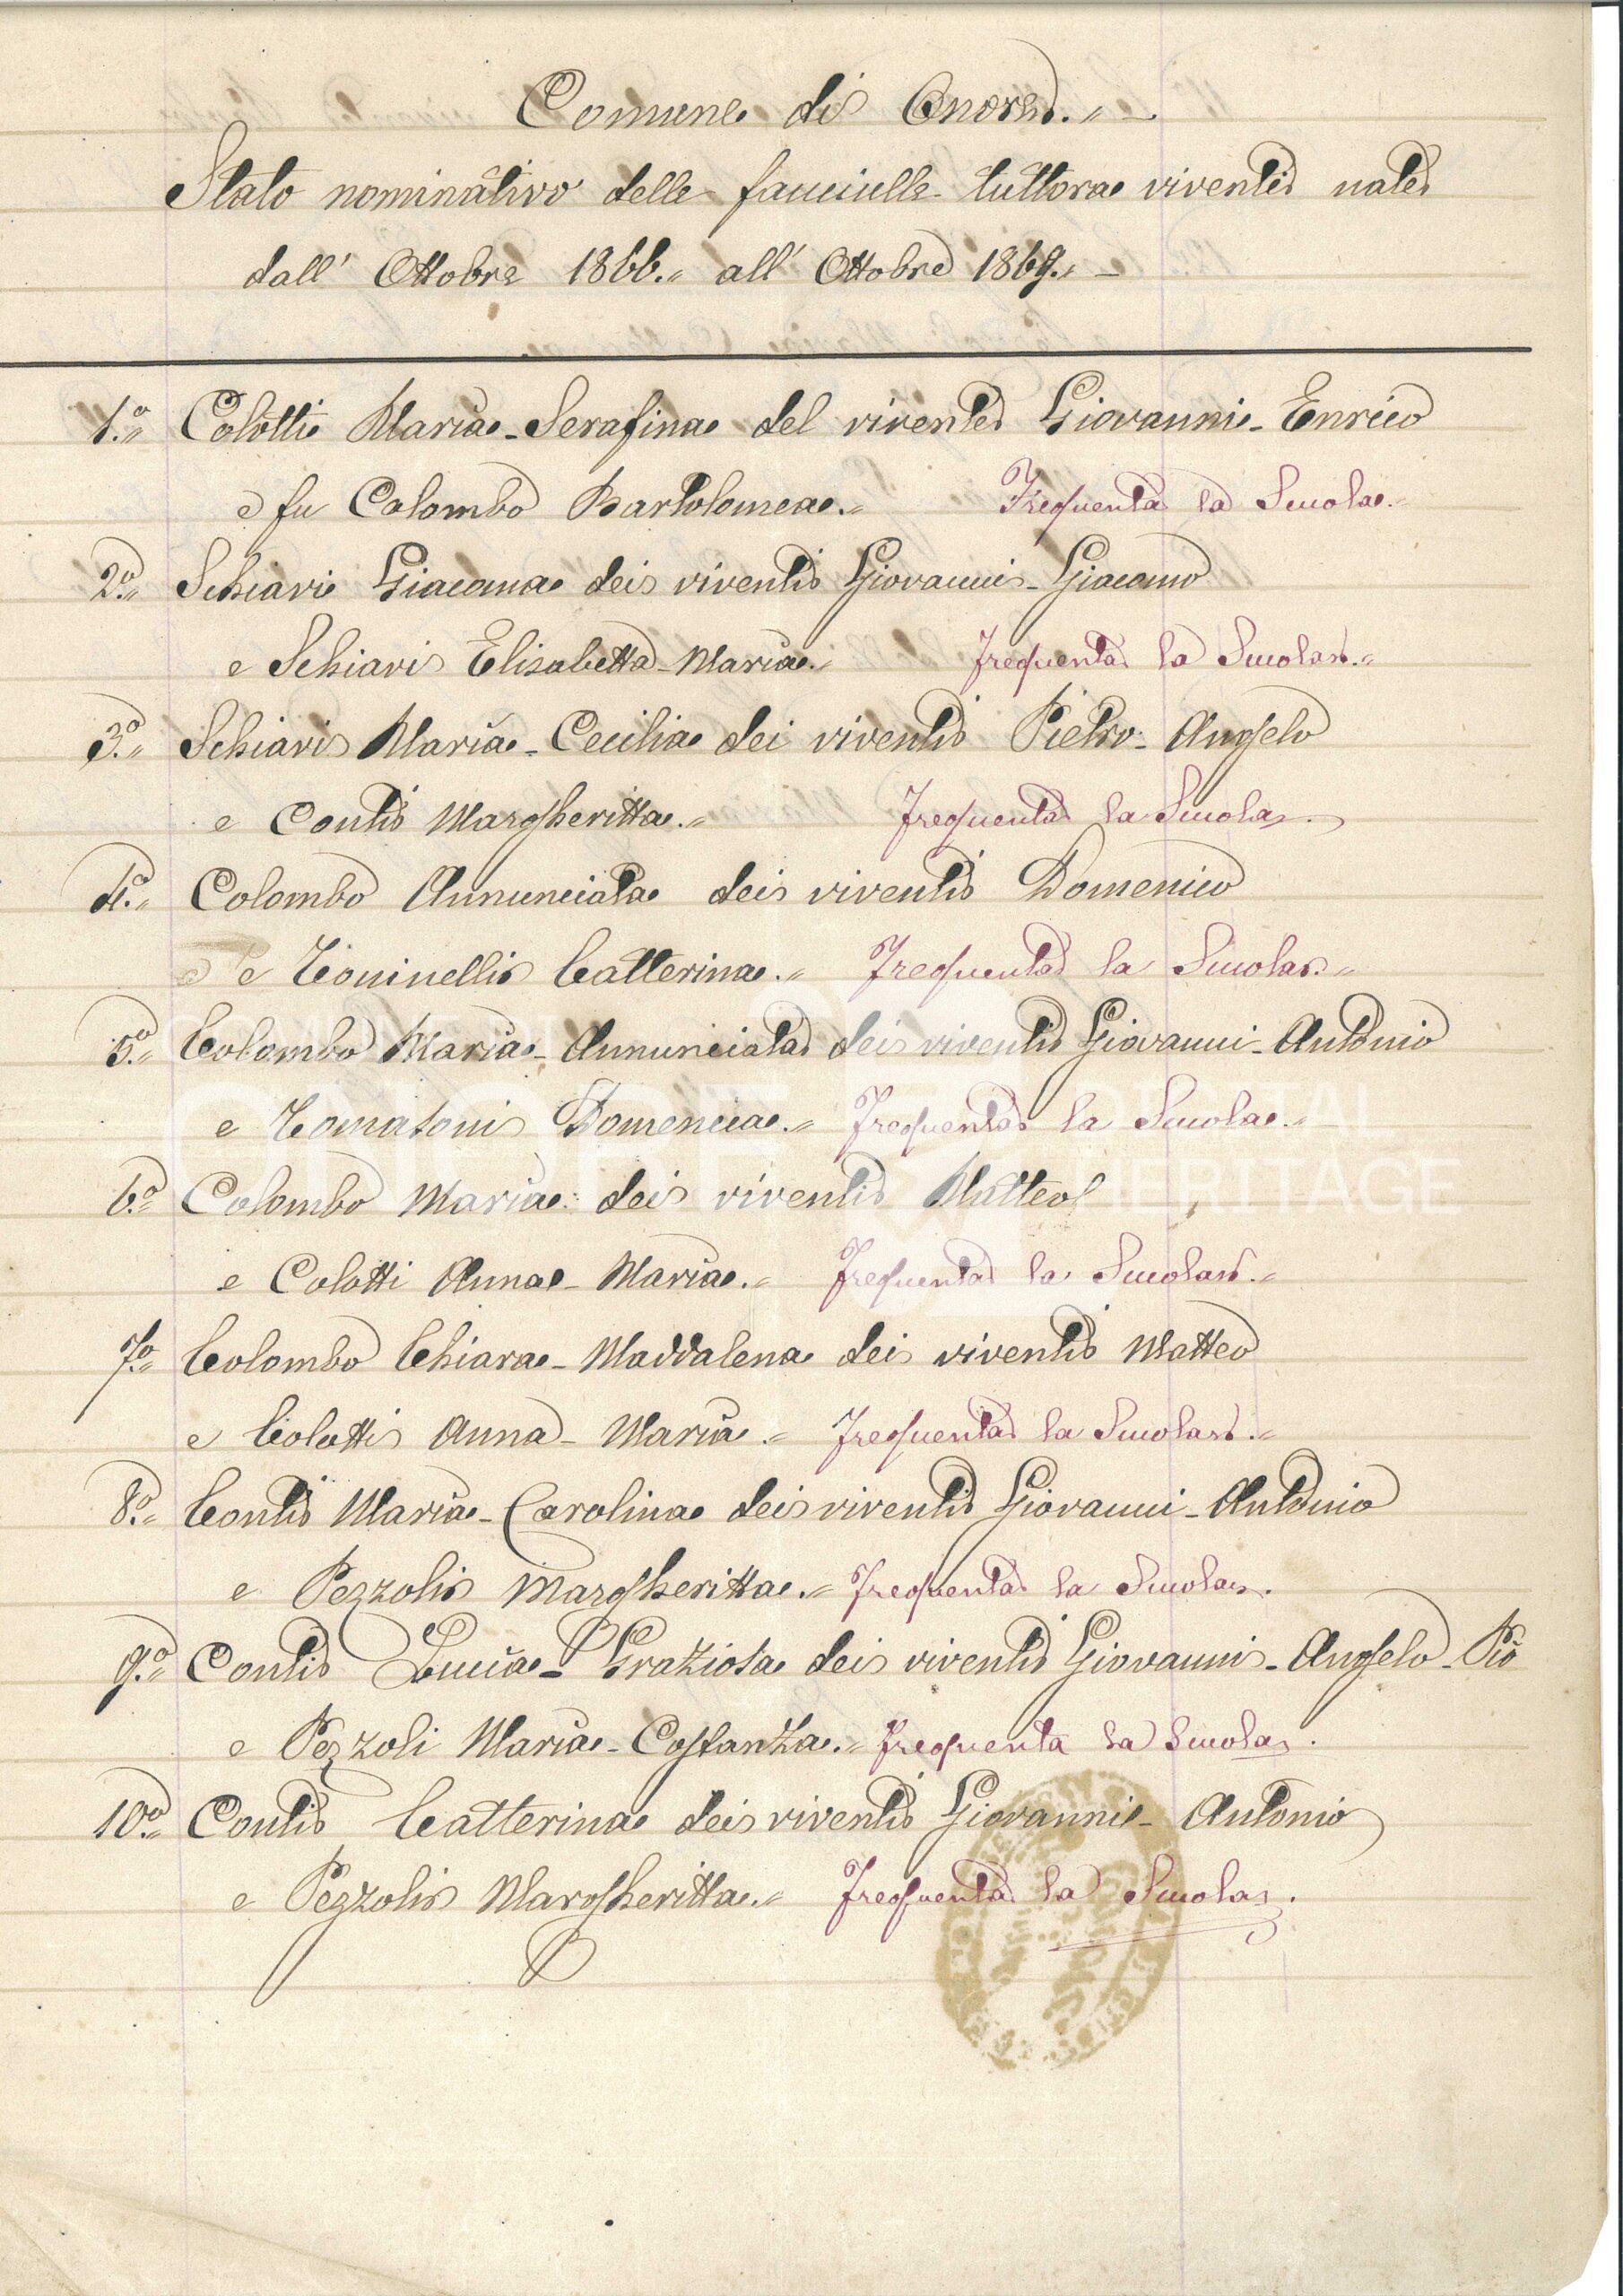 Comune di Onore. -
Stato nominativo delle fanciulle tuttora viventi nate
dall' Ottobre 1866. all' Ottobre 1869. -
1.° Colotti Maria-Serafina del vivente Giovanni-Enrico
e fu Colombo Bartolomea. Frequenta la Scuola.
2.° Schiavi Giacoma dei viventi Giovanni-Giacomo
e Schiavi Elisabetta-Maria. Frequenta la Scuola.
3.° Schiavi Maria-Cecilia dei viventi Pietro-Angelo
e Conti Margheritta. Frequenta la Scuola.
4.° Colombo Annunciata dei viventi Domenico
e Toninelli Catterina. Frequenta la Scuola.
5.° Colombo Maria-Annunciata dei viventi Giovanni-Antonio
e Tomasoni Domenica. Frequenta la Scuola.
6.° Colombo Maria dei viventi Matteo
e Colotti Anna-Maria. Frequenta la Scuola.
7.° Colombo Chiara-Maddalena dei viventi Matteo
e Colotti Anna-Maria. Frequenta la Scuola.
8.° Conti Maria-Carolina dei viventi Giovanni-Antonio
e Pezzoli Margheritta. Frequenta la Scuola.
9.° Conti Lucia-Graziosa dei viventi Giovanni-Angelo-Pio
e Pezzoli Maria-Costanza. Frequenta la Scuola.
10.° Conti Catterina dei viventi Giovanni-Antonio
e Pezzoli Margheritta. Frequenta la Scuola.
ONORE
HERITAGE